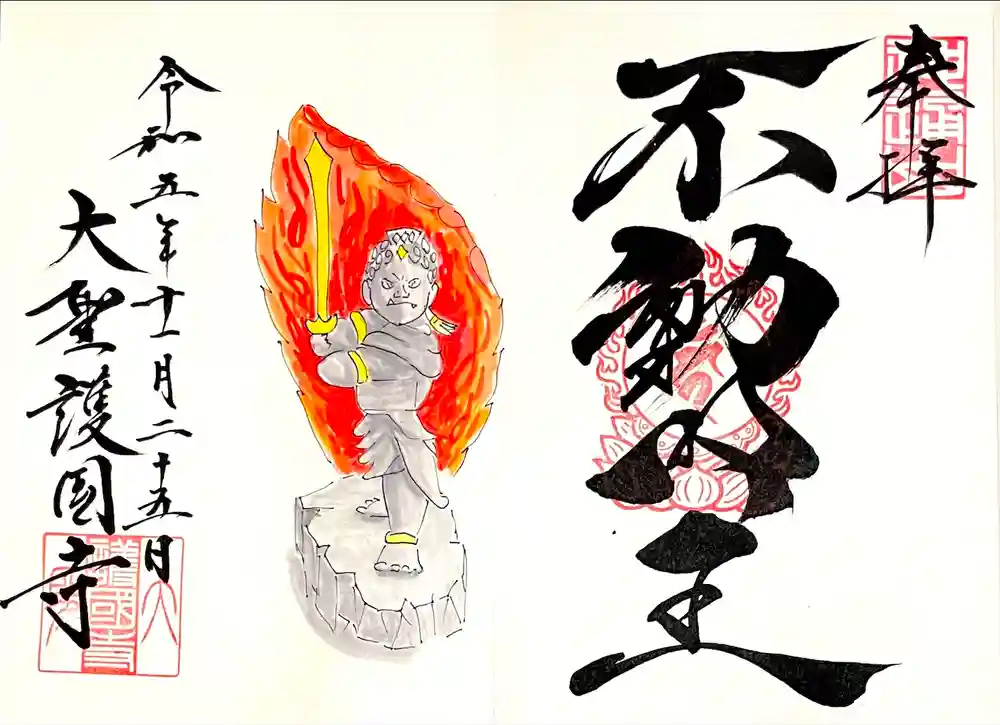 奉拝
不動明王
令和五年十一月二十五日
大聖護國寺